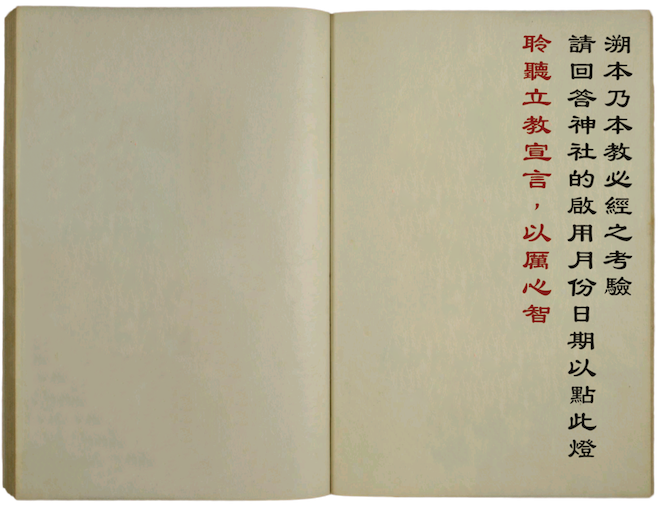 溯本乃本教必經之考驗
請回答神社的啟用月份日期以點此燈
聆聽立教宣言，以厲心智